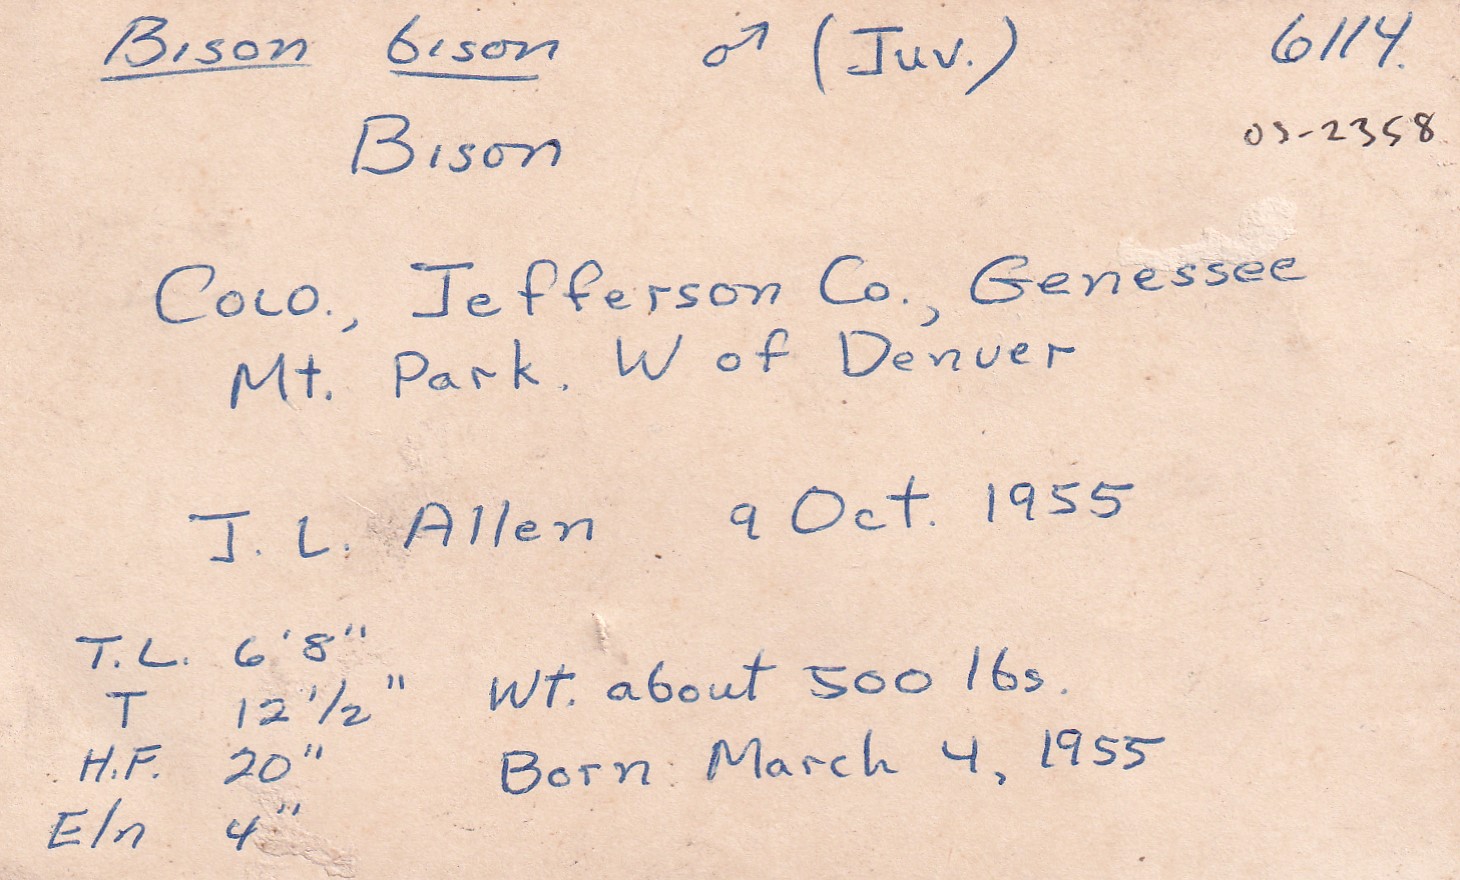 Bison bison ♂ (Juv.) 6114.
03-2358
Bison
Colo., Jefferson Co., Genessee
Mt. Park. W of Denver
J. L. Allen 9 Oct. 1955
T.L. 6'8"
T 12 1/2" Wt. about 500 lbs.
H.F. 20" Born: March 4, 1955
E/n 4"